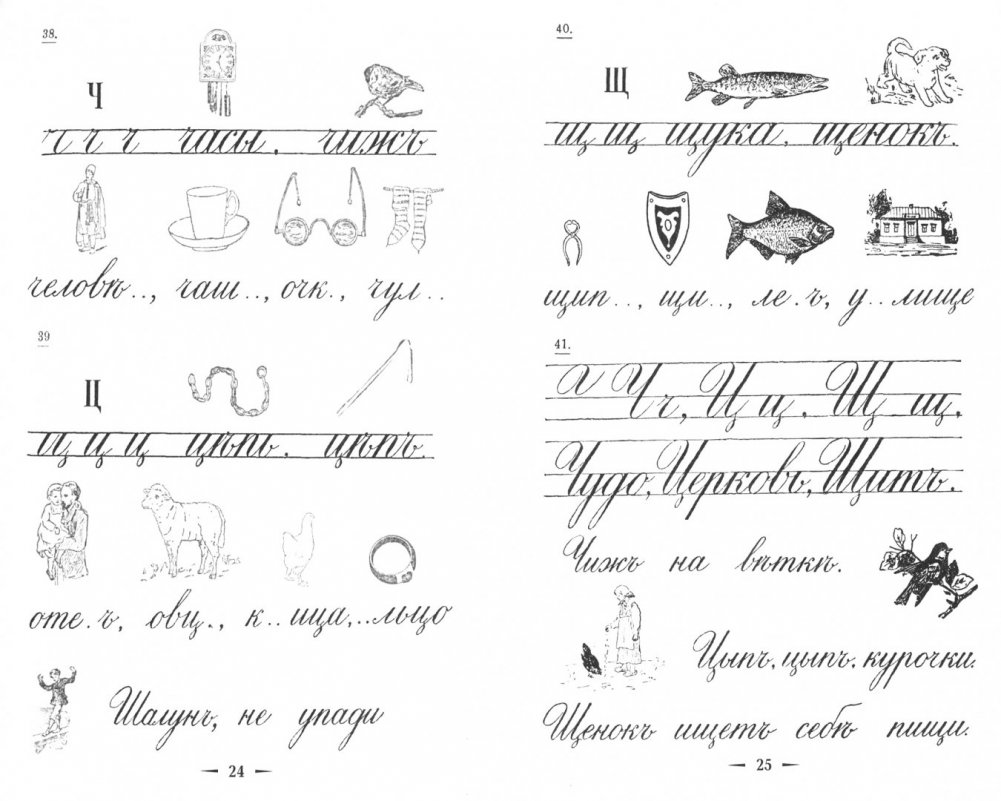 38.
Ч
ч ч ч часы. чижъ
человѣ.., чаш.., очк., чул..
39
Ц
ц ц ц цѣпь. цѣпъ.
оте.ъ, овц., к..ица,..льцо
Шалунъ, не упади
24
40.
Щ
щ щ щука. щенокъ.
щип.., щи.., ле.ъ, у..лище
41.
Ч ч, Ц ц. Щ щ.
Чудо, Церковь, Щитъ.
Чижъ на вѣткѣ.
Цыпъ, цыпъ. курочки.
Щенокъ ищетъ себѣ пищи.
25